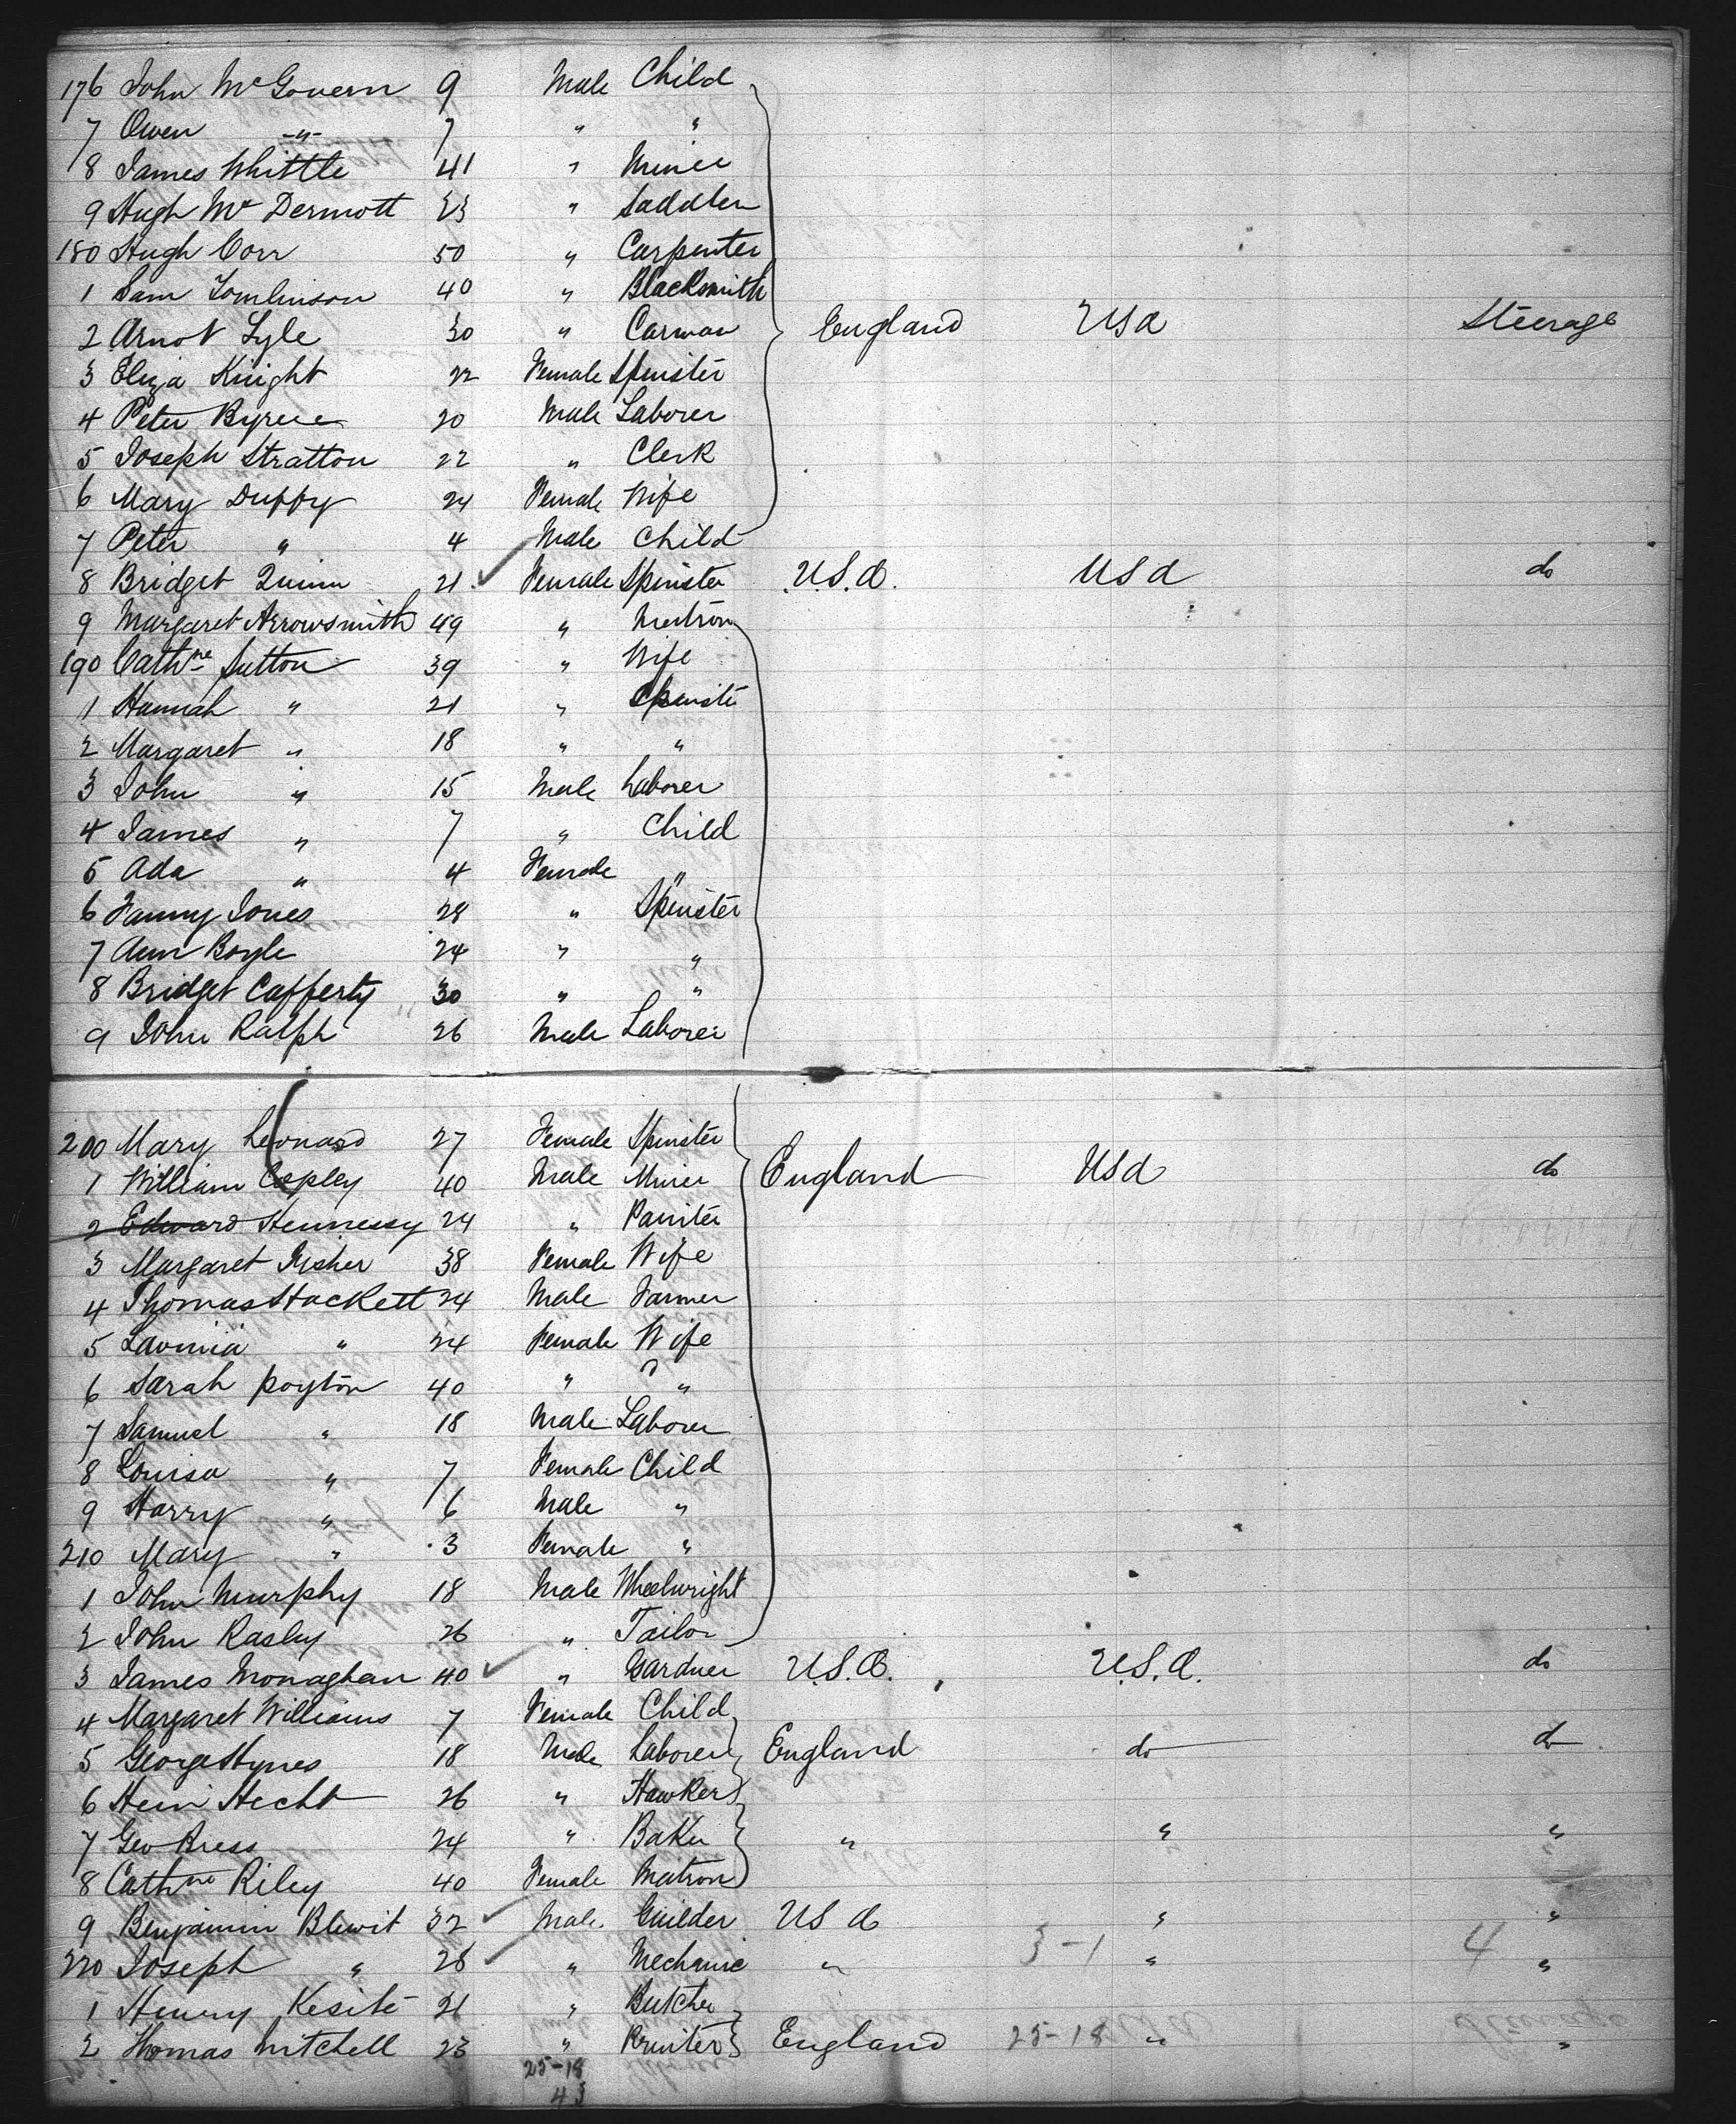 176 John McGovern 9 Male Child
7 Owen -"- 7 " "
8 James Whittle 41 " Miner
9 Hugh McDermott 23 " Saddler
180 Hugh Corr 50 " Carpenter
1 Sam Tomlinson 40 " Blacksmith
2 Arnot Lyle 30 " Carman England USA Steerage
3 Eliza Knight 22 Female Spinster
4 Peter Byrne 20 Male Laborer
5 Joseph Stratton 22 " Clerk
6 Mary Duffy 24 Female Wife
7 Peter " 4 Male Child
8 Bridget Quinn 21 Female Spinster U.S.A. USA do
9 Margaret Arrowsmith 49 " Matron
190 Cathne Sutton 39 " Wife
1 Hannah " 21 " Spinster
2 Margaret " 18 " "
3 John " 15 Male Laborer
4 James " 7 " Child
5 Ada " 4 Female "
6 Fanny Jones 28 " Spinster
7 Ann Boyle 24 " "
8 Bridget Cafferty 30 " "
9 John Ralph 26 Male Laborer
200 Mary Leonard 27 Female Spinster
1 William Copley 40 Male Miner England USA do
2 Edward Hennessy 24 " Painter
3 Margaret Fisher 38 Female Wife
4 Thomas Hackett 24 Male Farmer
5 Lavinia " 24 Female Wife
6 Sarah Poyton 40 " "
7 Samuel " 18 Male Laborer
8 Louisa " 7 Female Child
9 Harry " 6 Male "
210 Mary " 3 Female "
1 John Murphy 18 Male Wheelwright
2 John Rasley 26 " Tailor
3 James Monaghan 40 " Gardner U.S.A. U.S.A. do
4 Margaret Williams 7 Female Child
5 George Hynes 18 Male Laborer England do do
6 Hein Hecht 26 " Hawker
7 Geo Bress 24 " Baker " " "
8 Cathne Riley 40 Female Matron
9 Benjamin Blewit 32 Male Guilder USA " "
220 Joseph " 28 " Mechanic " 3-1 " 4 "
1 Henry 21 " Butcher
2 Thomas Mitchell 23 " Printer England 25-18 " "
25-18
4 3